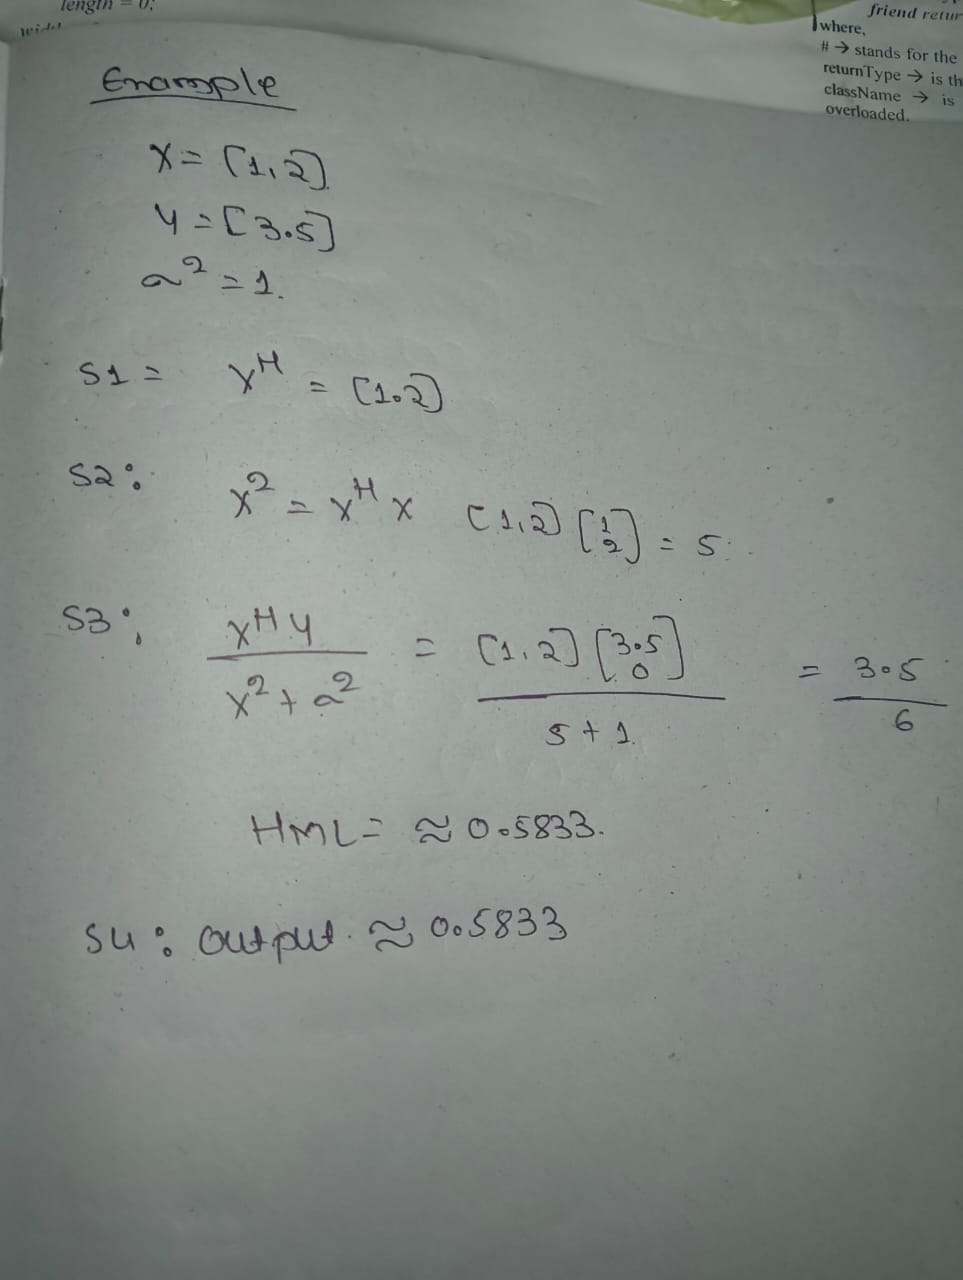 length = 0;
friend retur
where,
# → stands for the
returnType → is th
className → is
overloaded.
Example
X = [1, 2]
Y = [3.5]
a² = 1.
S1 = X^H = [1.2]
S2: X² = X^H X [1,2] [1 2] = 5.
S3: X^H Y / X² + a² = [1, 2] [3.5 0] / 5 + 1 = 3.5 / 6
HML = ≈ 0.5833.
S4: output ≈ 0.5833